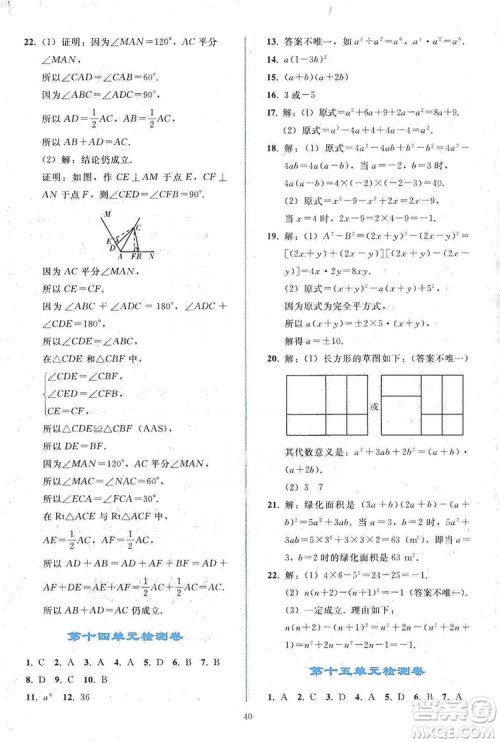 22. (1) 证明：因为∠MAN＝120°，AC 平分
∠MAN，
所以∠CAD＝∠CAB＝60°.
因为∠ABC＝∠ADC＝90°，
所以∠ACD＝∠ACB＝30°.
所以 AD＝1/2AC，AB＝1/2AC.
所以 AB＋AD＝AC.
(2) 解：结论仍成立.
证明：如图，作 CE⊥AM 于点 E，CF⊥AN
于点 F，则∠CED＝∠CFB＝90°.
M C E D A F B N
因为 AC 平分∠MAN，
所以 CE＝CF.
因为∠ABC＋∠ADC＝180°，∠ADC＋
∠CDE＝180°，
所以∠CDE＝∠ABC.
在△CDE 和△CBF 中，
∠CDE＝∠CBF，
∠CED＝∠CFB，
CE＝CF，
所以△CDE≌△CBF (AAS).
所以 DE＝BF.
因为∠MAN＝120°，AC 平分∠MAN，
所以∠MAC＝∠NAC＝60°.
所以∠ECA＝∠FCA＝30°.
在 Rt△ACE 与 Rt△ACF 中，
AE＝1/2AC，AF＝1/2AC，
所以 AD＋AB＝AD＋AF＋BF＝AD＋
AF＋DE＝AE＋AF＝1/2AC＋1/2AC＝AC.
所以 AB＋AD＝AC 仍成立.
第十四单元检测卷
1. C 2. D 3. C 4. A 5. D 6. D 7. B
8. A 9. D 10. B
11. a⁶ 12. 36
13. 答案不唯一，如 a²÷a²＝1
14. a(1－3b)²
15. (a＋b)(a＋2b)
16. 3 或－5
17. 解：(1) 原式＝a²＋6a＋9－a²＋2a＝8a＋9.
(2) 原式＝x²－9－x²＋2x＝2x－9.
18. 解：(1) 原式＝a²－4ab＋4b²－a²＋b²＝
－4ab＋5b². 当 a＝4，b＝1 时，
原式＝－4×4×1＋5×1²＝－11.
19. 解：(1) A²－B²＝(2x＋y)²－(2x－y)²＝
[(2x＋y)＋(2x－y)][(2x＋y)－(2x－
y)]＝4x·2y＝8xy.
因为原式为完全平方式，
所以 a(x＋y)＝±2×5(x＋y).
解得 a＝±10.
20. 解：(1) 长方形的草图如下：(答案不唯一)
或
其代数意义是：a²＋3ab＋2b²＝(a＋b)(a＋2b).
(2) 2 3 7
21. 解：绿化面积是 (3a＋b)(2a＋b)－(a＋
b)²＝5a²＋3ab. 当 a＝3，b＝2 时，5a²＋3ab＝
63. 所以此时的绿化面积是 63 m².
22. 解：(1) 4×6－5²＝24－25＝－1.
(2) 答案不唯一. 如 n(n＋2)－(n＋1)²＝－1.
(3) 一定成立. 理由如下：
n(n＋2)－(n＋1)²＝n²＋2n－(n²＋2n＋
1)＝n²＋2n－n²－2n－1＝－1.
第十五单元检测卷
1. A 2. A 3. C 4. A 5. D 6. A 7. C
40